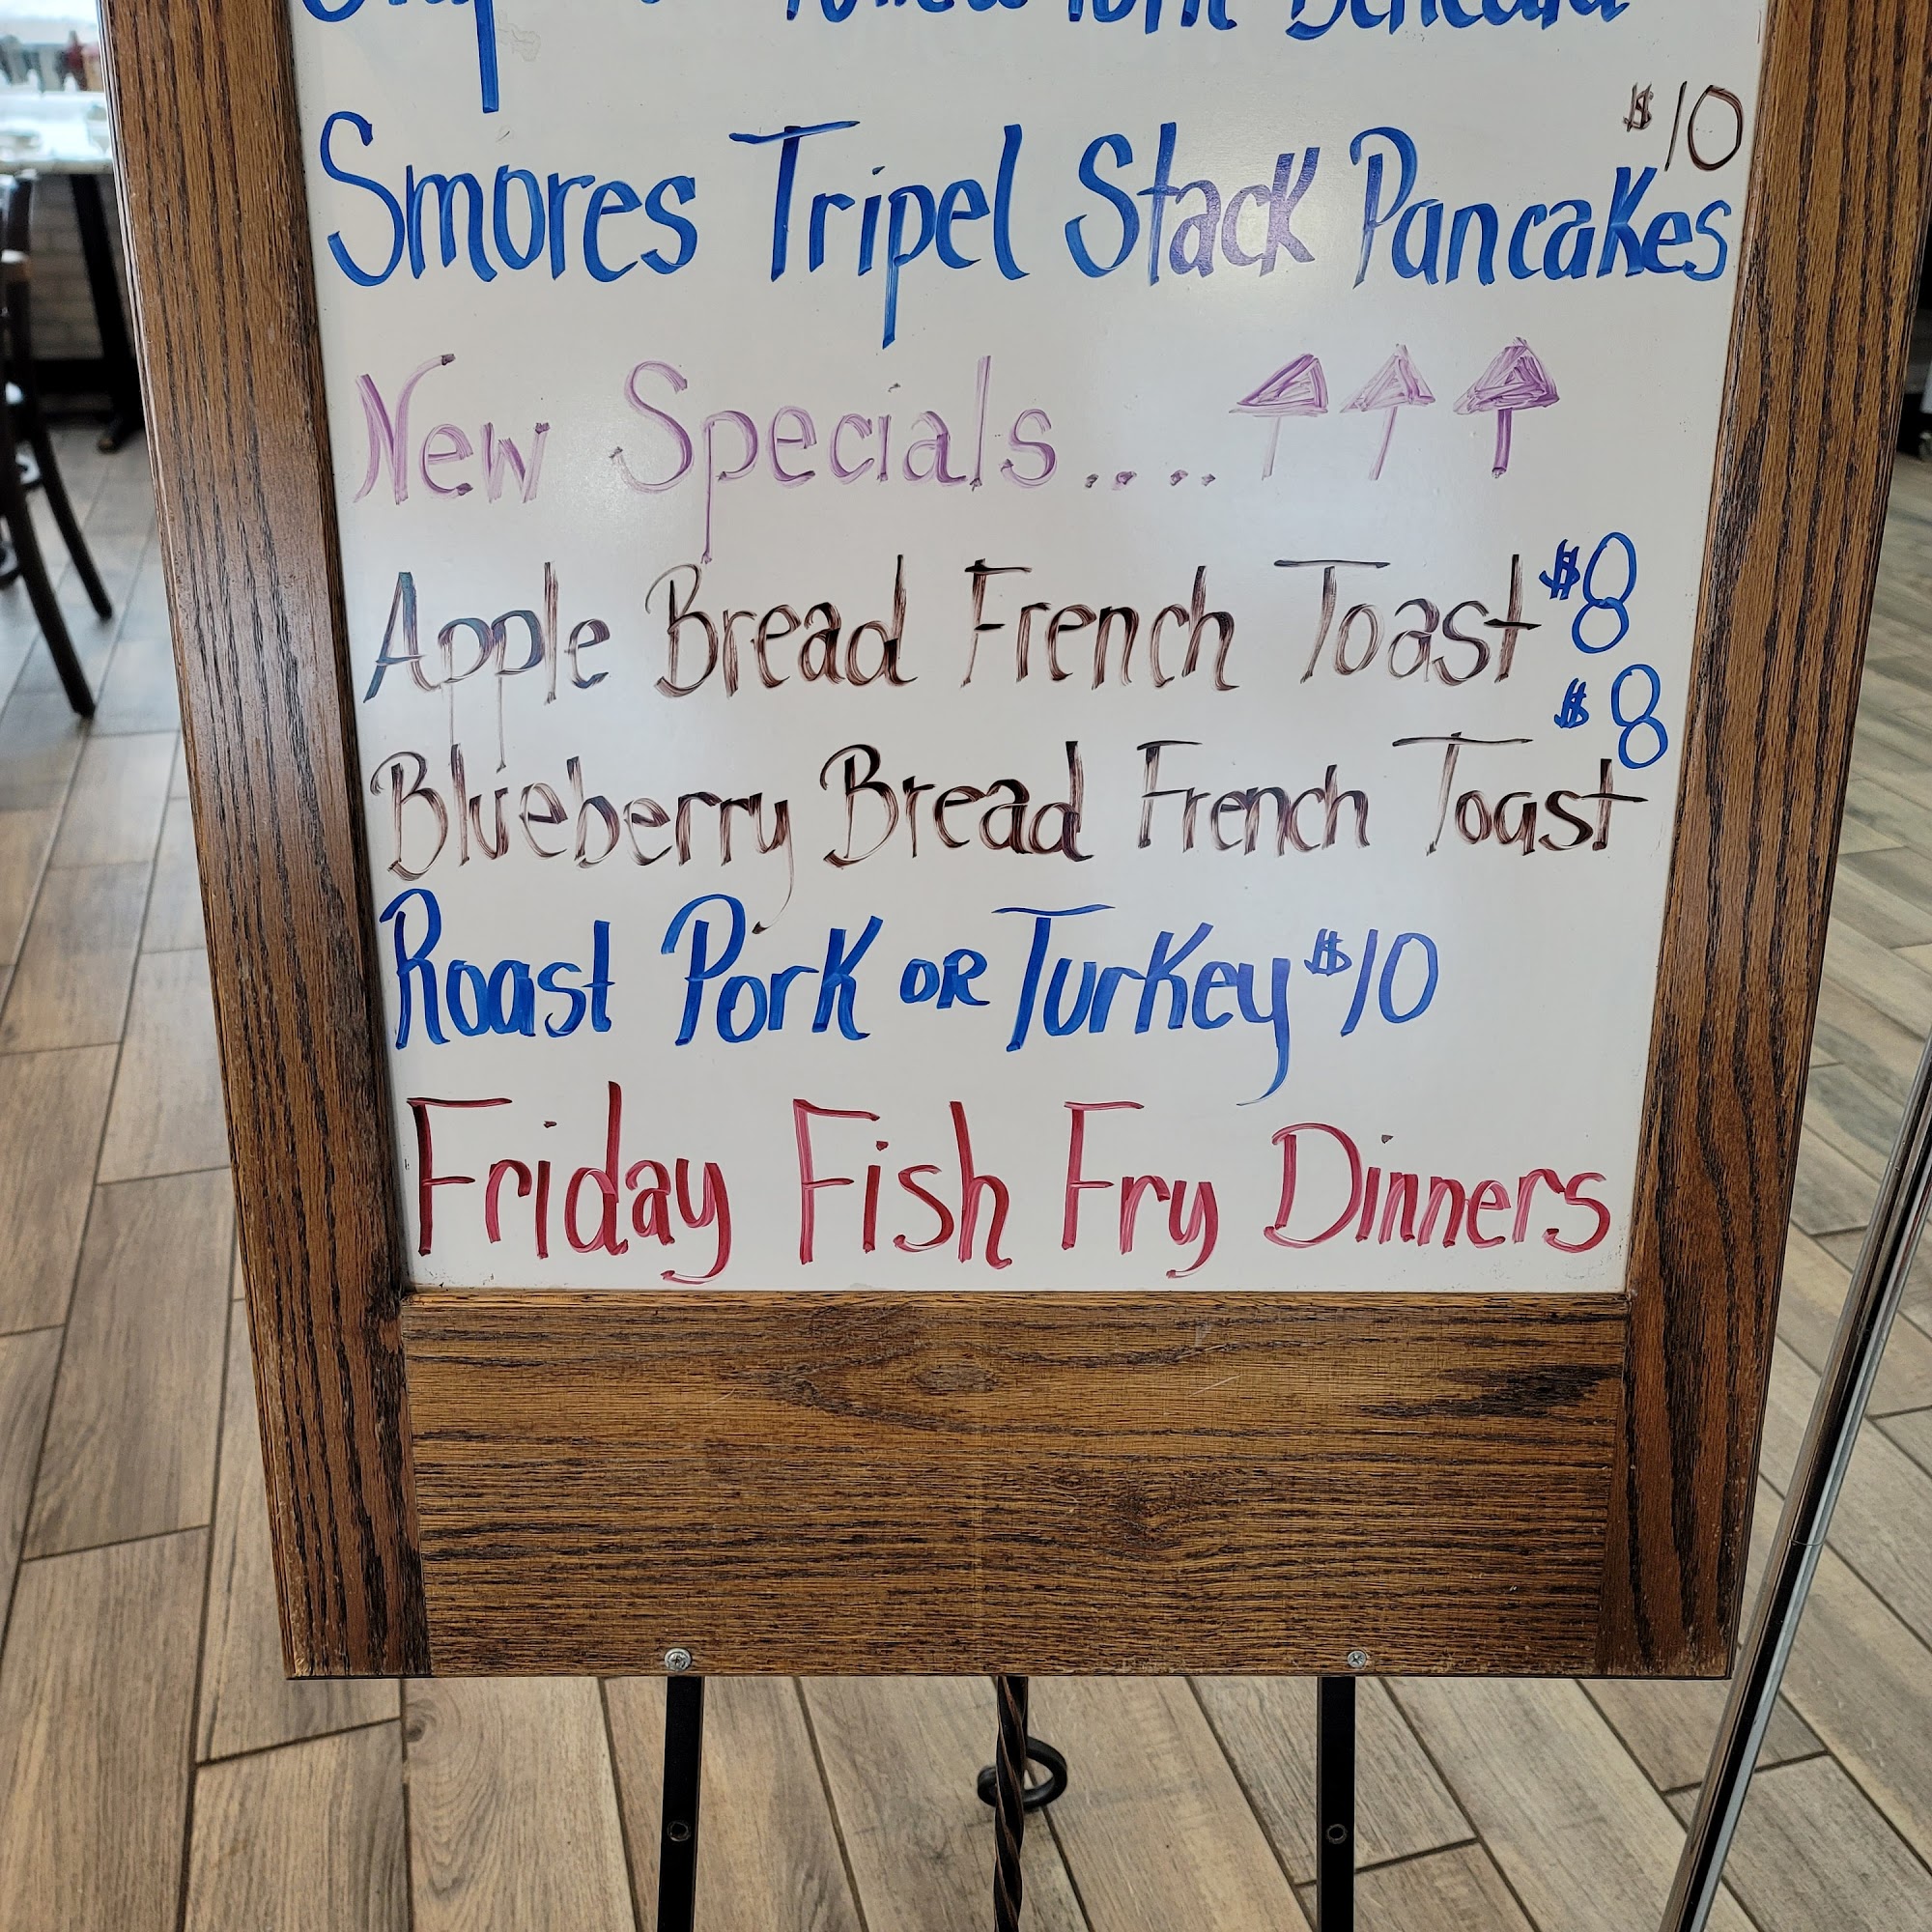 Pulled Pork Benedict
$10
Smores Tripel Stack Pancakes
New Specials....
Apple Bread French Toast $8
$8
Blueberry Bread French Toast
Roast Pork OR Turkey $10
Friday Fish Fry Dinners